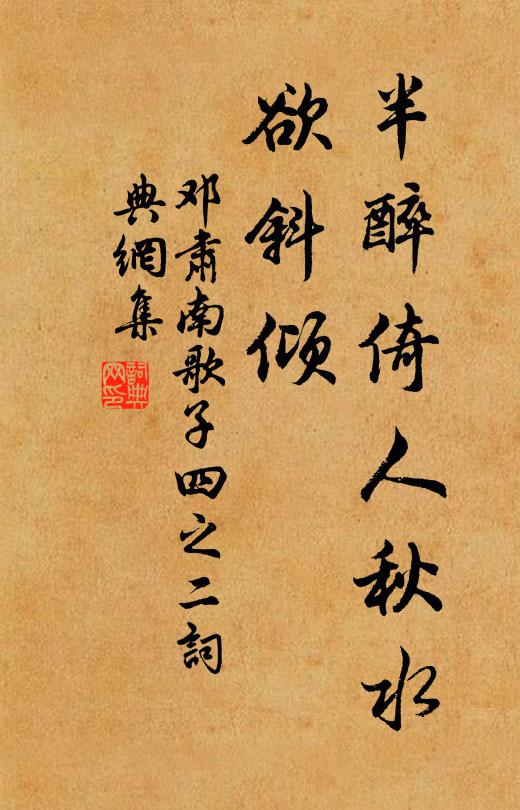 半醉倚人秋水
欲斜倾
邓肃南歌子四之二詞
典網集
詞典
网印